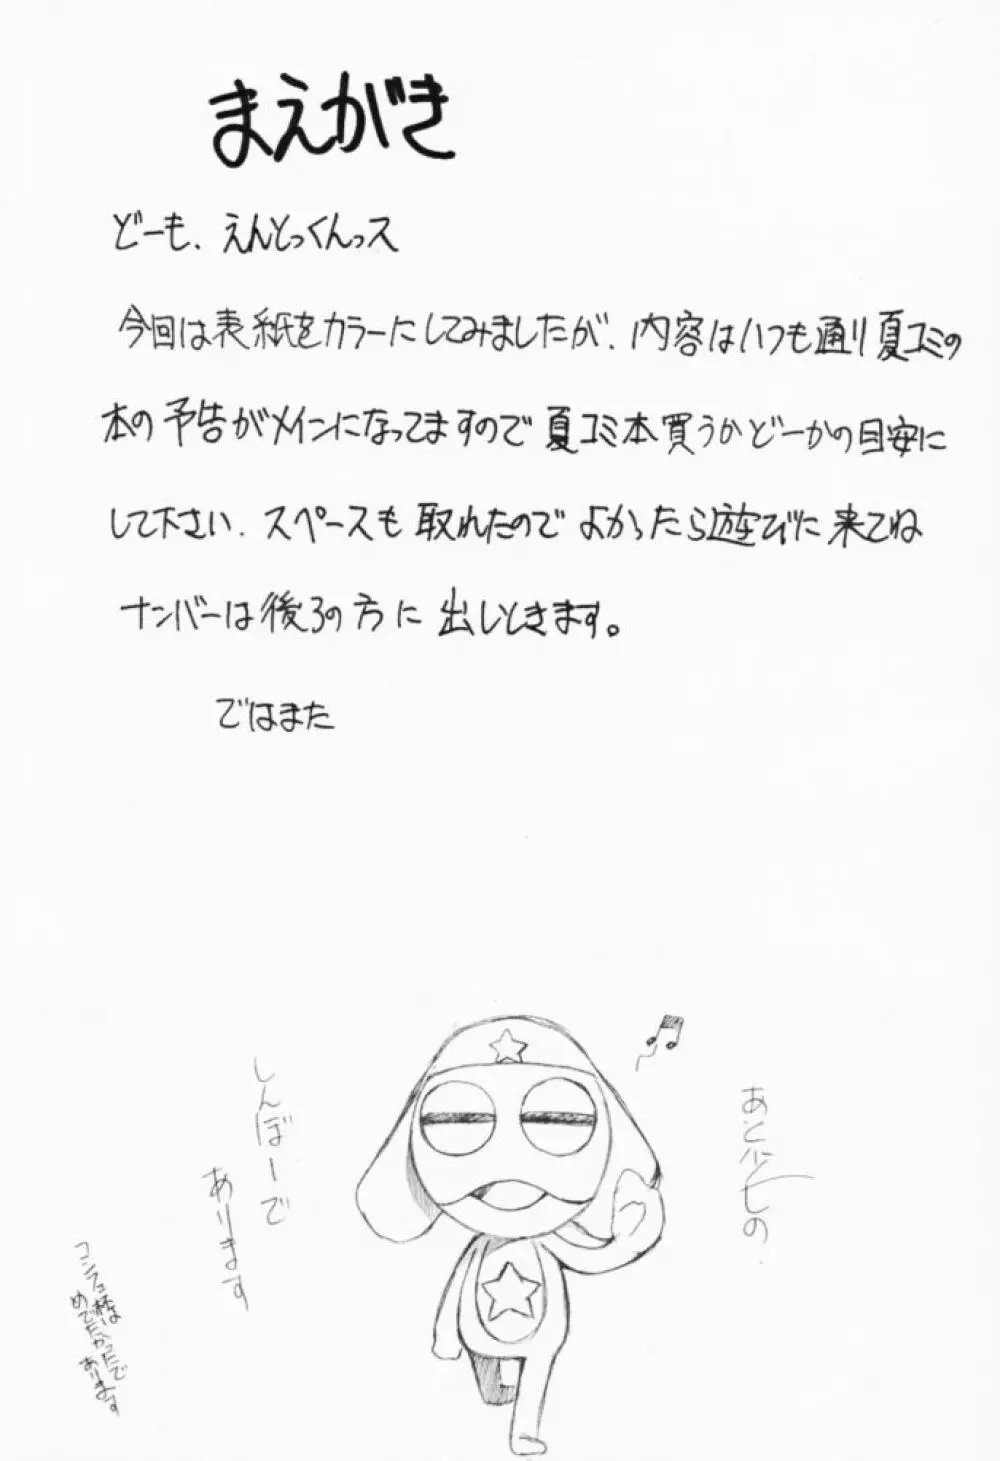 まえがき
どーも、えんとっくんっス
今回は表紙をカラーにしてみましたが、内容はいつも通り夏コミの
本の予告がメインになってますので夏コミ本買うかどーかの目安に
して下さい。スペースも取れたのでよかったら遊びに来てね
ナンバーは後ろの方に出しときます。
ではまた
あと少しの
しんぼーで
あります
コンフェ杯は
めでたかったで
あります